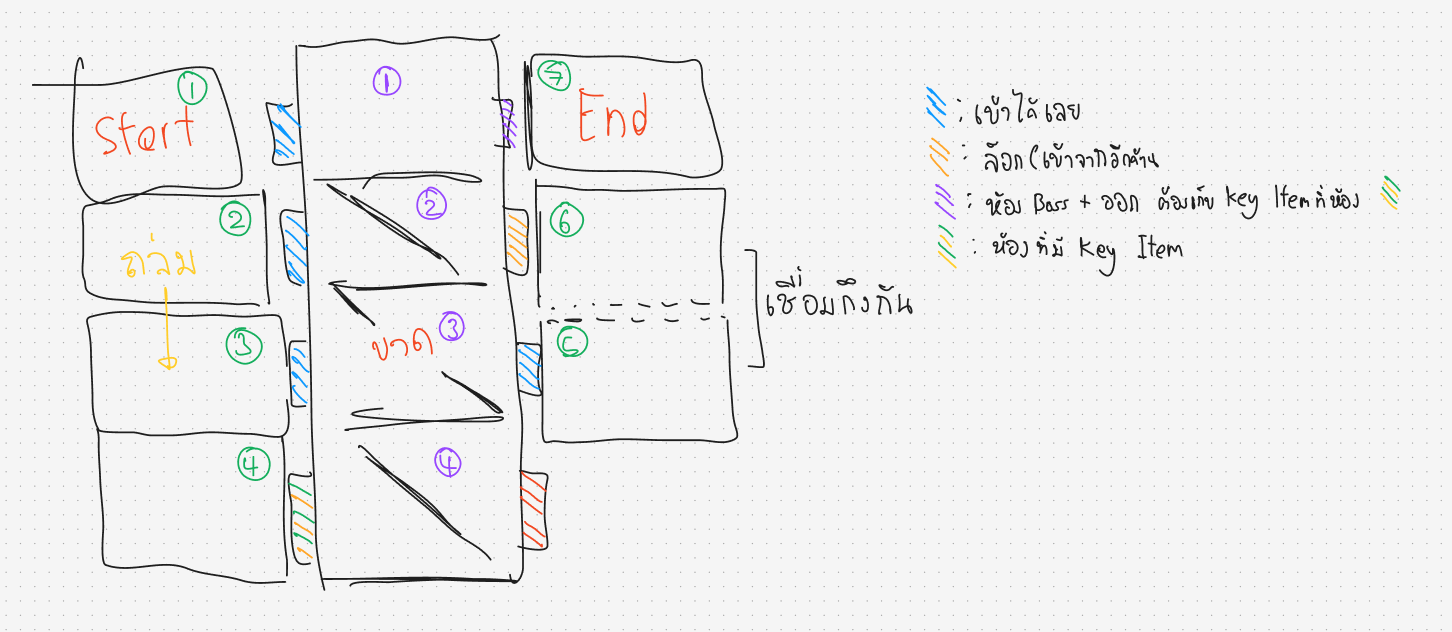 1
Start
2
ถล่ม
3
4
1
2
3
ขาด
4
7
End
6
5
เชื่อมถึงกัน
: เข้าได้เลย
: ล็อก (เข้าจากอีกด้าน
: ห้อง Boss + ออก ต้องเก็บ Key Item ที่ห้อง
: ห้องที่มี Key Item